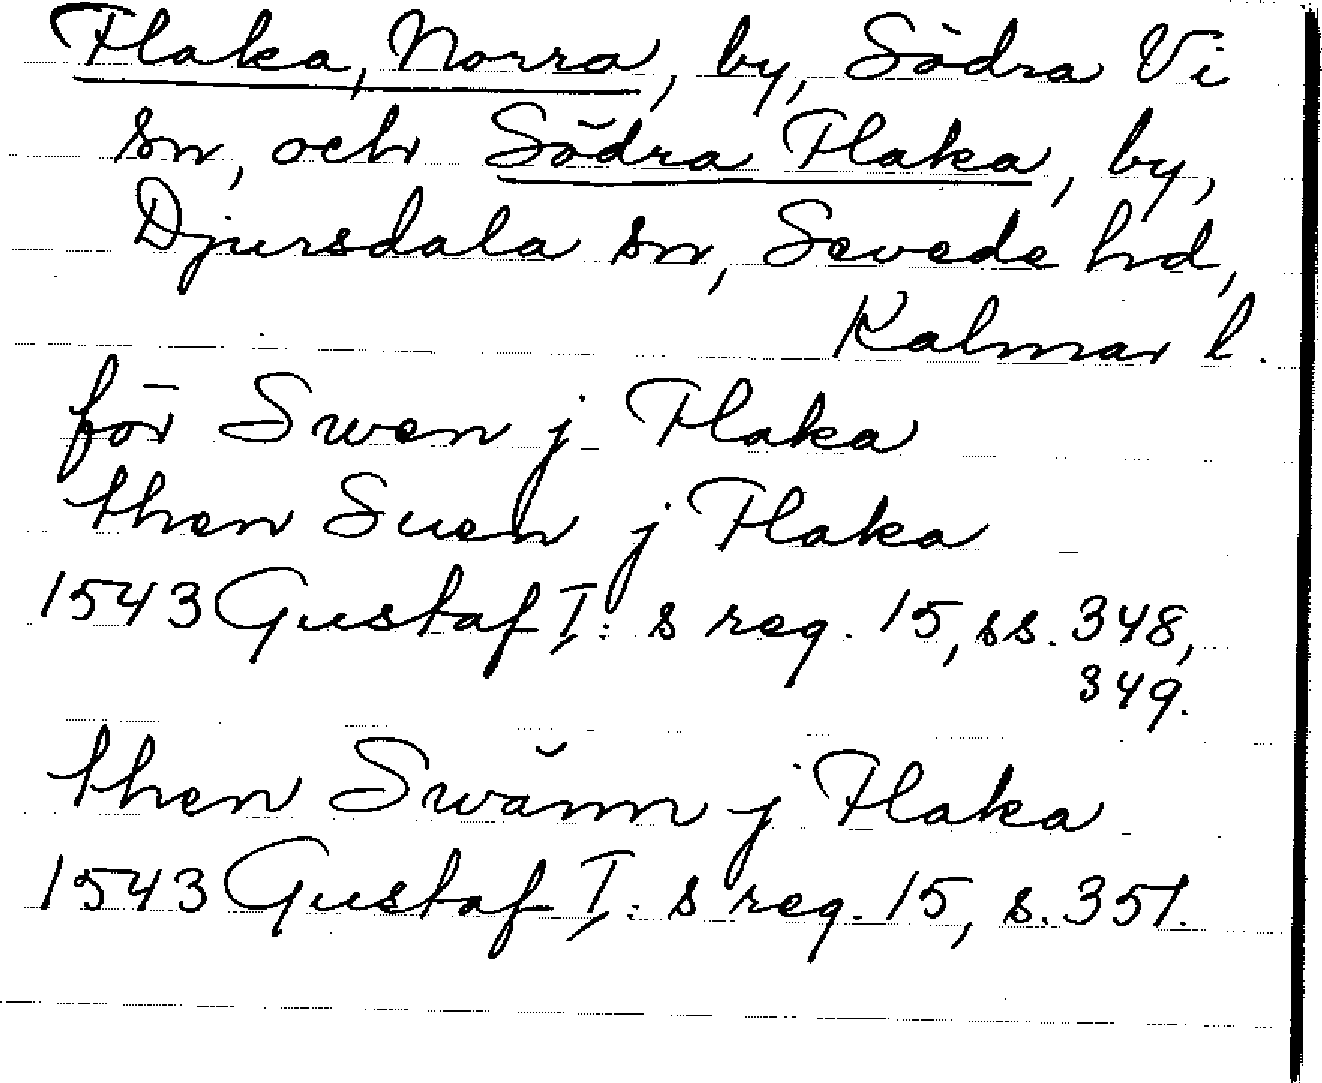 Flaka, Norra, by, Södra Vi
sn, och Södra Flaka, by,
Djursdala sn, Sevede hd,
Kalmar l.
för Swen j Flaka
then Suen j Flaka
1543 Gustaf I:s reg. 15, ss. 348,
349.
then Swänn j Flaka
1543 Gustaf I:s reg. 15, s. 351.